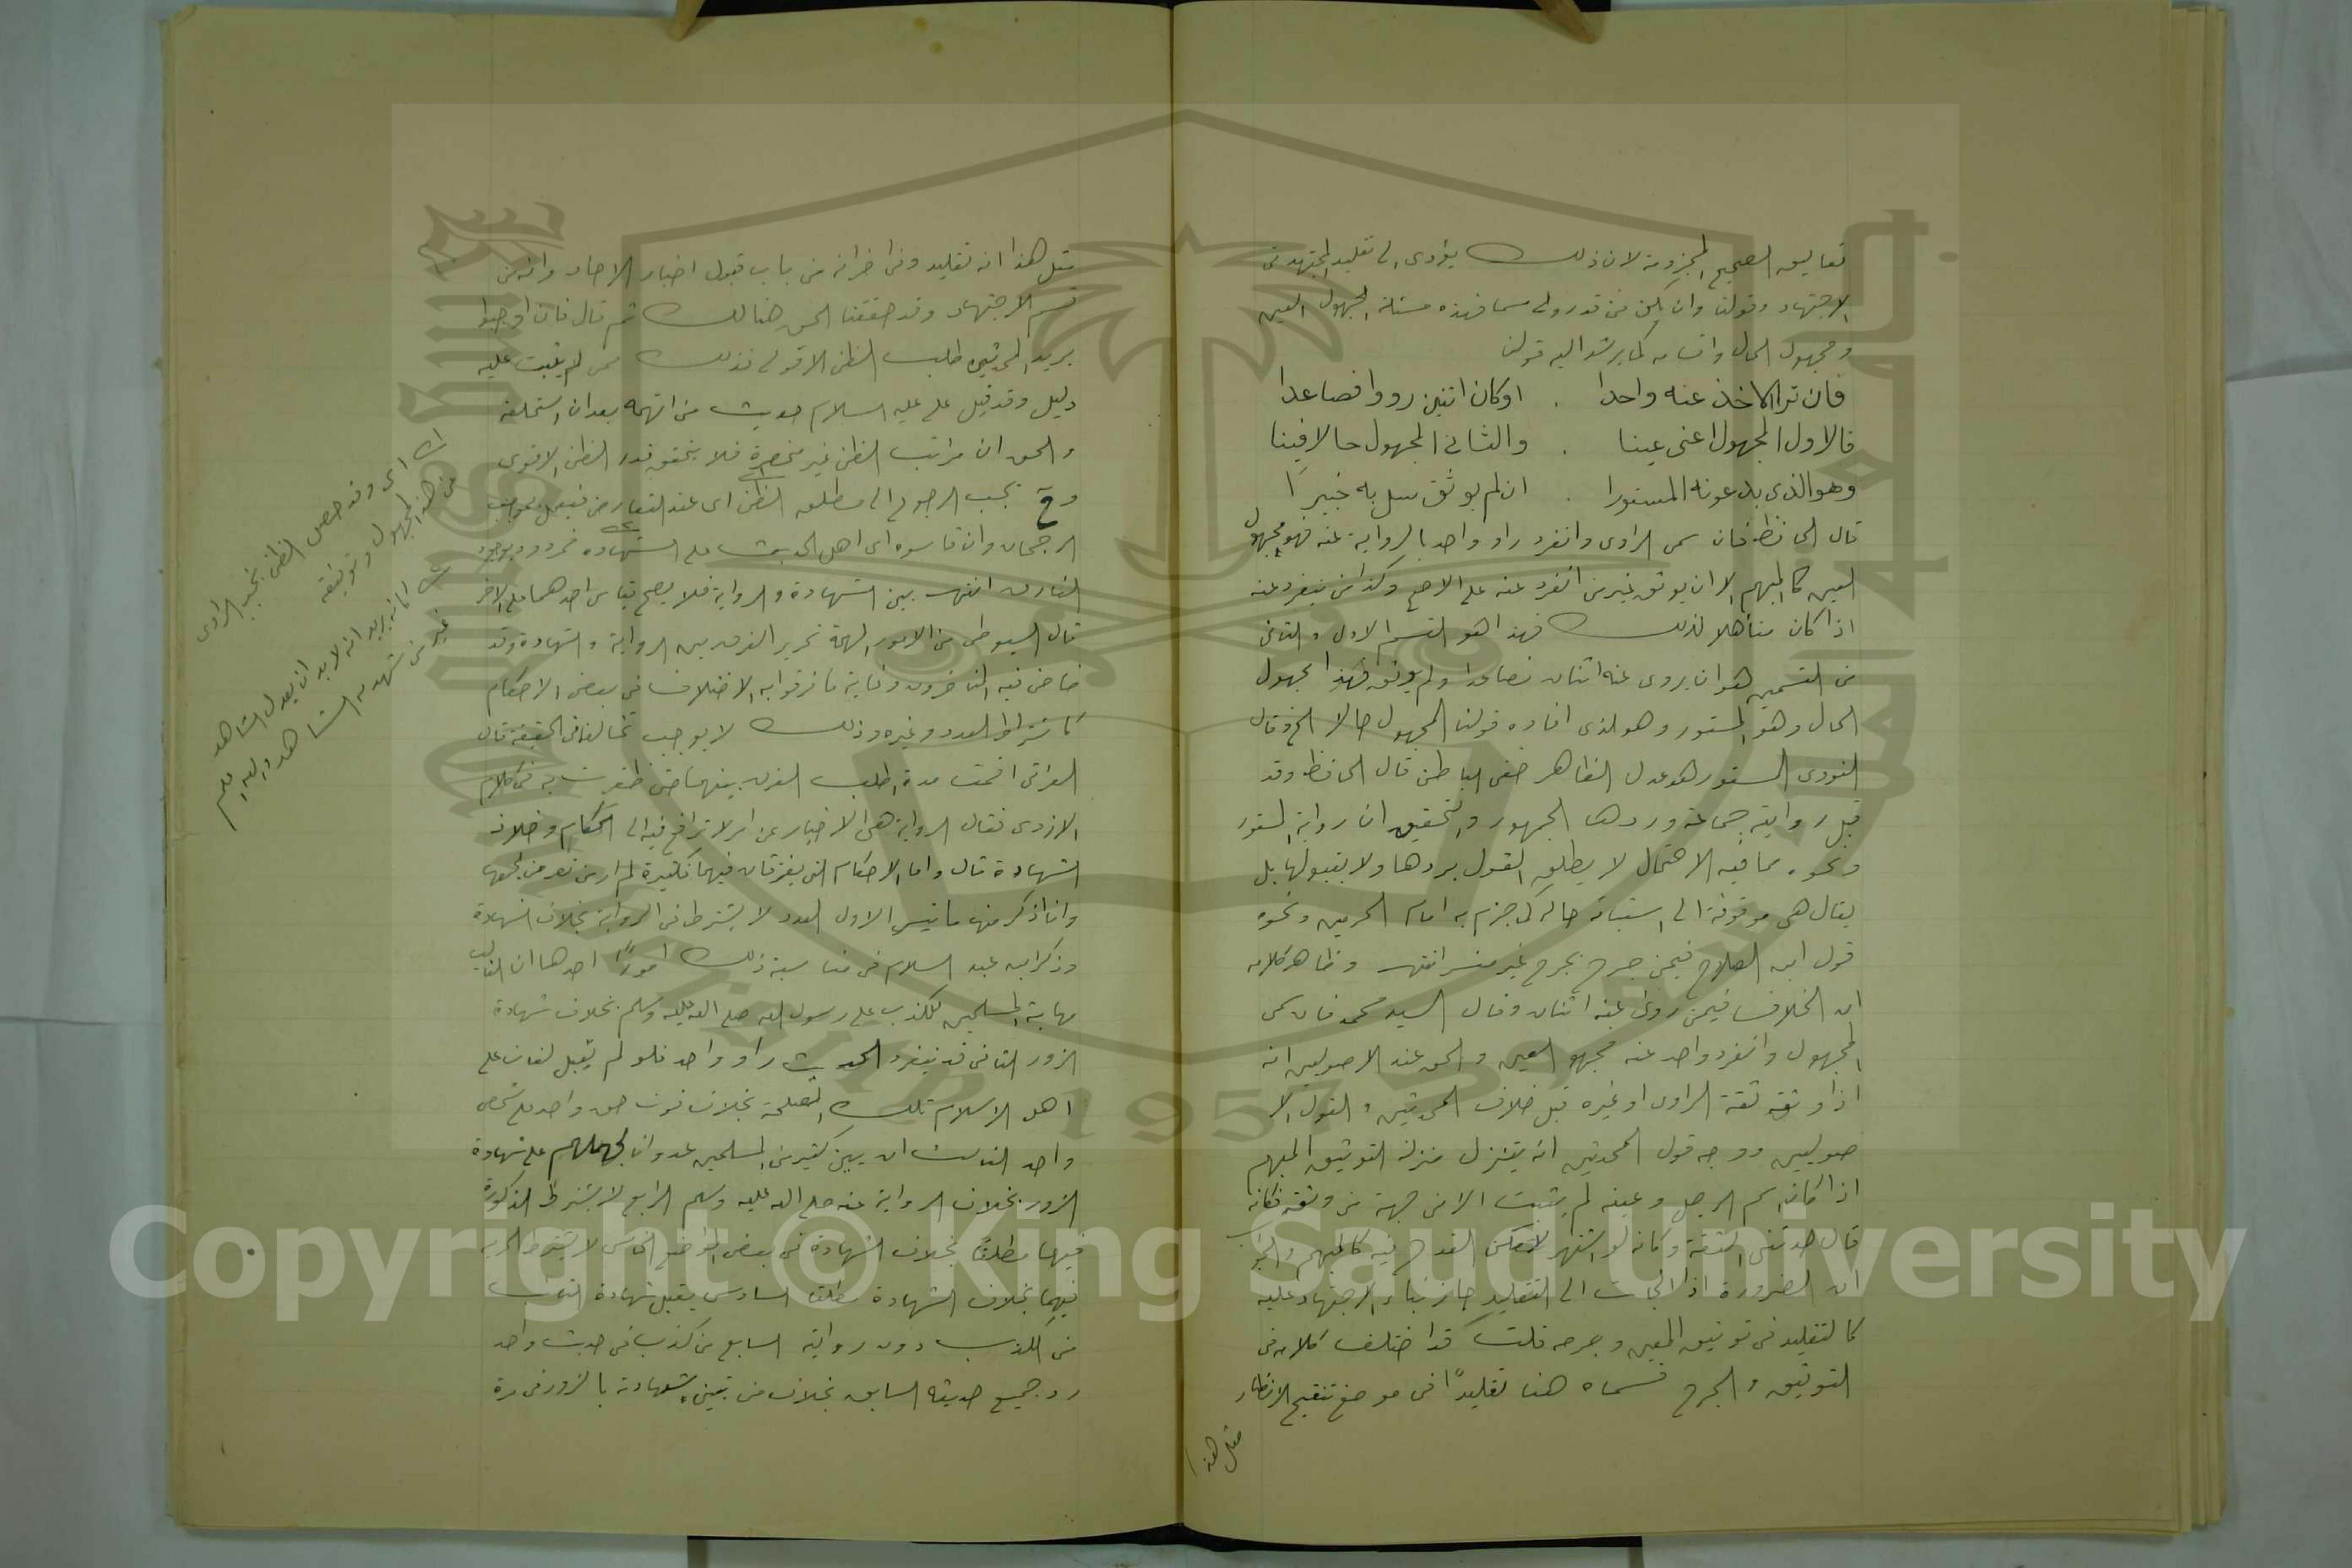 تعاليق الصحيح المجزومة لان ذلك يؤدى الى تقليد المجتهد فى
الاجتهاد وقولنا وان يكن من قدروى مسما فهذه مسئلة المجهول العين
ومجهول الحال واقسامه كما يرشد اليه قولنا
فان ترا الآخذ عنه واحدا . اوكان اثنين رووا فصاعدا
فالاول المجهول اعنى عينا . والثانى المجهول حالا فينا
وهوالذى يدعونه المستورا . ان لم يوثق سل به خبيرًا
قال الحافظ فان سمى الراوى وانفرد راو واحد بالرواية عنه فهو مجهول
العين كالمبهم الا ان يوثق غير من انفرد عنه على الاصح وكذا من ينفرد عنه
اذا كان متأهلا لذلك فهذا هو القسم الاول والثانى
من القسمين هو ان يروى عنه اثنان فصاعدا ولم يوثق فهذا مجهول
الحال وهو المستور وهو الذى افاده قولنا المجهول حالا الخ وقال
النووى المستور هو عدل الظاهر خفى الباطن قال الحافظ وقد
قبل روايته جماعة وردها الجمهور والتحقيق ان رواية المستور
ونحوه مما فيه الاحتمال لا يطلق القول بردها ولا بقبولها بل
يقال هى موقوفة الى استبانة حاله كما جزم به امام الحرمين ونحوه
قول ابن الصلاح فيمن جرح بجرح غير مفسر انتهى وظاهر كلامه
ان الخلاف فيمن روى عنه اثنان وقال السيد محمد فان سمى
المجهول وانفرد واحد عنه مجهول العين والحق عند الاصوليين انه
اذا وثقه ثقة الراوى او غيره قبل خلاف المحدثين والقول الا
صوليين ووجه قول المحدثين انه يتنزل منزلة التوثيق المبهم
اذا كان اسم الرجل وعينه لم يثبت الا من جهة من وثقه فكانه
قال حدثنى الثقة وكانه لو اشتهر لامكن القدح فيه كالمبهم
ان الضرورة اذا الجأت الى التقليد جاز بناء الاجتهاد عليه
كالتقليد فى توثيق المعين وجرحه قلت قد اختلف كلامه فى
التوثيق والجرح فسماه هنا تقليدًا فى موضع تنقيح الانظار
مثل هذا
مثل هذا انه تقليد وفى اخر انه من باب قبول اخبار الاحاد وانه من
قسم الاجتهاد وقد حققنا الحق هنالك ثم قال فان اوجبوا
يريد المحدثين طلب الظن الاقوى فذلك ممن لم يثبت عليه
دليل وقد قبل على عليه السلام حديث من اتهمه بعد ان استحلفه
والحق ان مراتب الظن غير منحصرة فلا يتحقق قدر الظن الاقوى
وح يجب الرجوع الى مطلق الظن اى عند التعارض فيعمل بموجب
الرجحان وان قاسوه اى اهل الحديث على الشهادة فمردود بوجود
الفارق انتهى بين الشهادة والرواية فلا يصح قياس احدهما على الاخر
قال السيوطى من الامور المهمة تحرير الفرق بين الرواية والشهادة وقد
خاض فيه المتاخرون وغاية ما فرقوا به الاختلاف فى بعض الاحكام
كاشتراط العدد وغيره وذلك لا يوجب تخالفا فى الحقيقة قال
القرافى اقمت مدة اطلب الفرق بينهما حتى ظفرت به فى كلام
المازرى فقال الرواية هى الاخبار عن امر لا ترافع فيه الى الحكام وخلافه
الشهادة قال واما الاحكام التى يفترقان فيها فكثيرة لم ار من تعرض لجمعها
وانا اذكر منها ما تيسر الاول العدد لا يشترط فى الرواية بخلاف الشهادة
وذكر ابن عبد السلام فى مناسبة ذلك امورًا احدها ان الغالب
مهابة المسلمين للكذب على رسول الله صلى الله عليه وسلم بخلاف شهادة
الزور الثانى قد ينفرد الحديث راو واحد فلو لم يقبل لفات على
اهل الاسلام تلك المصلحة بخلاف فوت حق واحد على شخص
واحد الثالث ان بين كثير من المسلمين عدوان تحملهم على شهادة
الزور بخلاف الرواية عنه صلى الله عليه وسلم الرابع لا يشترط الذكورة
فيها مطلقًا بخلاف الشهادة فى بعض المواضع الخامس لا يشترط الحرية
فيها بخلاف الشهادة مطلقا السادس يقبل شهادة التائب
من الكذب دون رواية السابع من كذب فى حديث واحد
رد جميع حديثه السابق بخلاف من تبين شهادته بالزور فى مرة
اى وقد حصل الظن بخبر الراوى
عن هذا المجهول وتوثيقه
كانه يريد انه لا بد ان يعدل الشاهد
غير من شهد به الشاهد والله اعلم
Copyright © King Saud University
1957